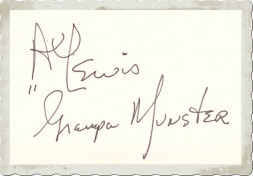 Al Lewis
"Grampa Munster